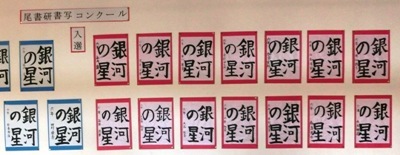 尾書研書写コンクール
入選
銀河
の星
銀河
の星
銀河
の星
銀河
の星
銀河
の星
銀河
の星
銀河
の星
銀河
の星
銀河
の星
銀河
の星
銀河
の星
銀河
の星
銀河
の星
銀河
の星
銀河
の星
銀河
の星
銀河
の星
銀河
の星